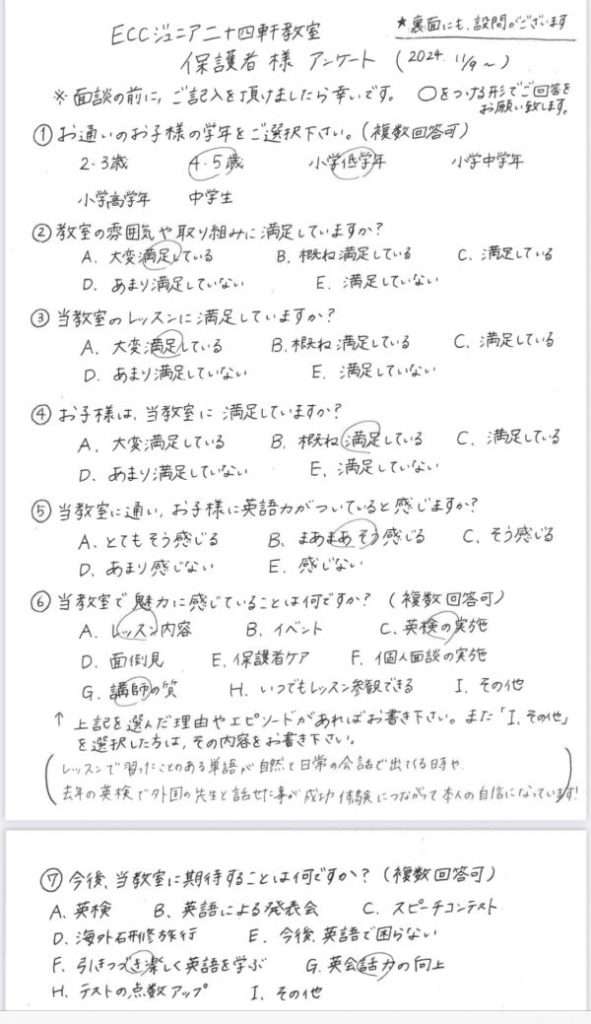 ECCジュニア二十四軒教室
★裏面にも、設問がございます
保護者様 アンケート (2024. 11/9〜)
※ 面談の前に、ご記入を頂けましたら幸いです。 ○をつける形でご回答をお願い致します。
① お通いのお子様の学年をご選択下さい。(複数回答可)
2・3歳 4・5歳 小学低学年 小学中学年
小学高学年 中学生
② 教室の雰囲気や取り組みに満足していますか?
A. 大変満足している B. 概ね満足している C. 満足している
D. あまり満足していない E. 満足していない
③ 当教室のレッスンに満足していますか?
A. 大変満足している B. 概ね満足している C. 満足している
D. あまり満足していない E. 満足していない
④ お子様は、当教室に満足していますか?
A. 大変満足している B. 概ね満足している C. 満足している
D. あまり満足していない E. 満足していない
⑤ 当教室に通い、お子様に英語力がついていると感じますか?
A. とてもそう感じる B. まあまあそう感じる C. そう感じる
D. あまり感じない E. 感じない
⑥ 当教室で魅力に感じていることは何ですか? (複数回答可)
A. レッスン内容 B. イベント C. 英検の実施
D. 面倒見 E. 保護者ケア F. 個人面談の実施
G. 講師の質 H. いつでもレッスン参観できる I. その他
↑ 上記を選んだ理由やエピソードがあればお書き下さい。また「I. その他」
を選択した方は、その内容をお書き下さい。
(レッスンで習ったことのある単語が自然と日常の会話で出てくる時や、
去年の英検で外国の先生と話せた事が成功体験につながって本人の自信になっています!)
⑦ 今後、当教室に期待することは何ですか? (複数回答可)
A. 英検 B. 英語による発表会 C. スピーチコンテスト
D. 海外研修旅行 E. 今後、英語で困らない
F. 引きつづき楽しく英語を学ぶ G. 英会話力の向上
H. テストの点数アップ I. その他